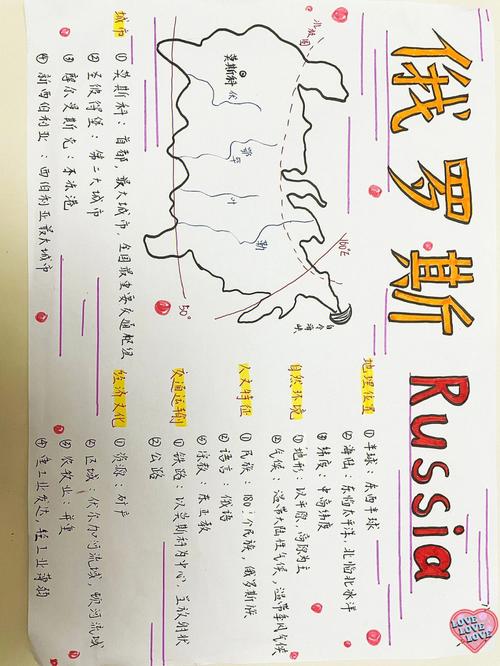 俄罗斯 Russia
北极圈
莫斯科
伏
鄂毕
叶
勒
160°E
白令海峡
50°
城市 ① 莫斯科：首都，最大城市，全国最重要交通枢纽
② 圣彼得堡：第二大城市
③ 摩尔曼斯克：不冻港
④ 新西伯利亚：西伯利亚最大城市
地理位置
① 半球：东西半球
② 海陆：东临太平洋，北临北冰洋
③ 纬度：中高纬度
自然环境
① 地形：以平原、高原为主
② 气候：温带大陆性气候、温带季风气候
人文特征
① 民族：180个民族，俄罗斯族
② 语言：俄语
宗教：东正教
交通运输
① 铁路：以莫斯科为中心
② 公路
经济文化
① 资源：矿产
② 区域：伏尔加河流域，顿河流域
③ 农牧业：并重
④ 重工业发达，轻工业薄弱
LOVE
LOVE
LOVE